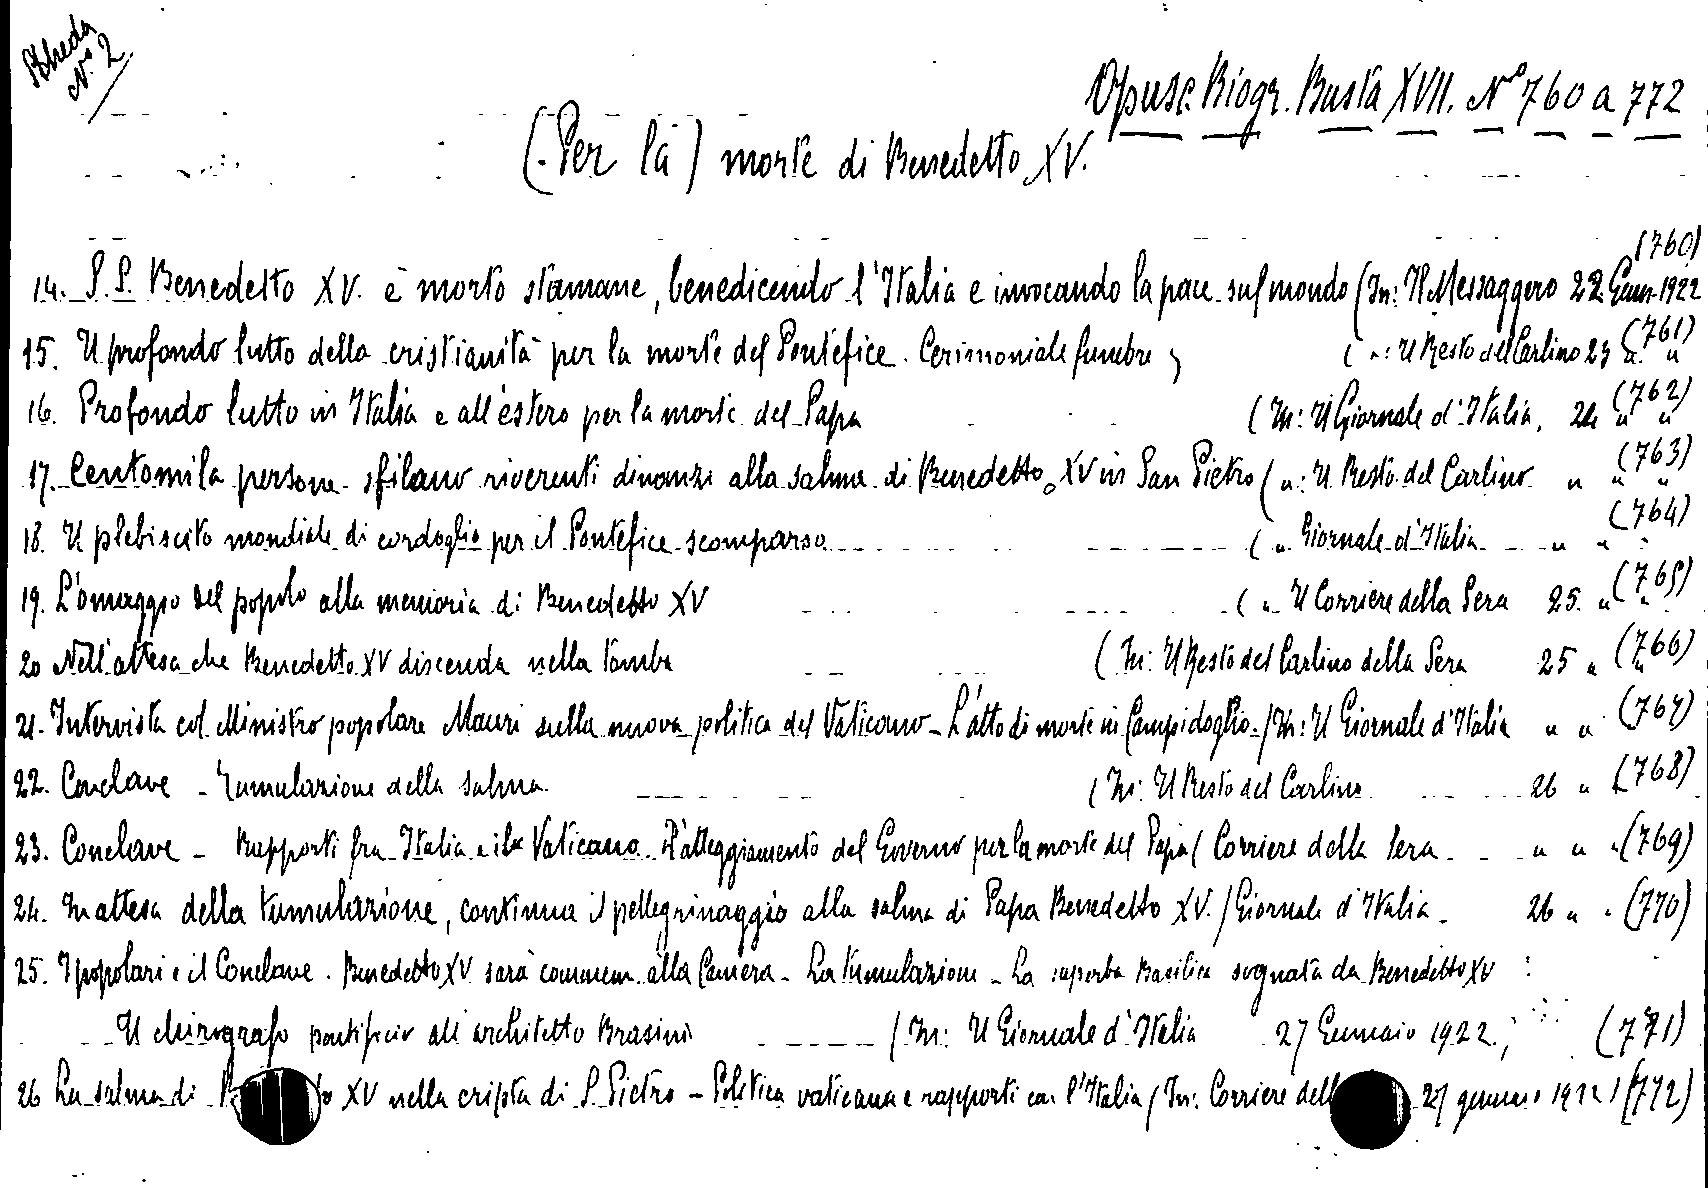 Scheda
N.º 2
Opusc. Biogr. Busta XVII. Nº 760 a 772
(Per la) morte di Benedetto XV.
(760)
14. S.S. Benedetto XV. è morto stamane, benedicendo l'Italia e invocando la pace sul mondo (In: Il Messaggero 22 Genn. 1922
15. Il profondo lutto della cristianità per la morte del Pontefice. Cerimoniale funebre ( ": Il Resto del Carlino 23 " " (761)
16. Profondo lutto in Italia e all'estero per la morte del Papa (In: Il Giornale d'Italia, 24 " " (762)
17. Centomila persone sfilano riverenti dinanzi alla salma di Benedetto XV in San Pietro ( ": Il Resto del Carlino " " " (763)
18. Il plebiscito mondiale di cordoglio per il Pontefice scomparso ( " Giornale d'Italia " " (764)
19. L'omaggio del popolo alla memoria di Benedetto XV ( " Il Corriere della Sera 25. " " (765)
20 Nell'attesa che Benedetto XV discenda nella tomba (In: Il Resto del Carlino della Sera 25 " " (766)
21. Intervista col Ministro popolare Mauri sulla nuova politica del Vaticano - L'atto di morte in Campidoglio. (In: Il Giornale d'Italia " " (767)
22. Conclave - Tumulazione della salma (In: Il Resto del Carlino 26 " (768)
23. Conclave - Rapporti fra Italia e il Vaticano. L'atteggiamento del Governo per la morte del Papa ( Corriere della Sera " " " (769)
24. In attesa della tumulazione, continua il pellegrinaggio alla salma di Papa Benedetto XV. (Giornale d'Italia 26 " " (770)
25. I popolari e il Conclave. Benedetto XV sarà commem. alla Camera - La tumulazione - La superba Basilica sognata da Benedetto XV
Il chirografo pontificio all'architetto Brasini (In: Il Giornale d'Italia 27 Gennaio 1922.; (771)
26 La salma di XV nella cripta di S. Pietro - Politica vaticana e rapporti con l'Italia (In: Corriere dell 27 gennaio 1922) (772)